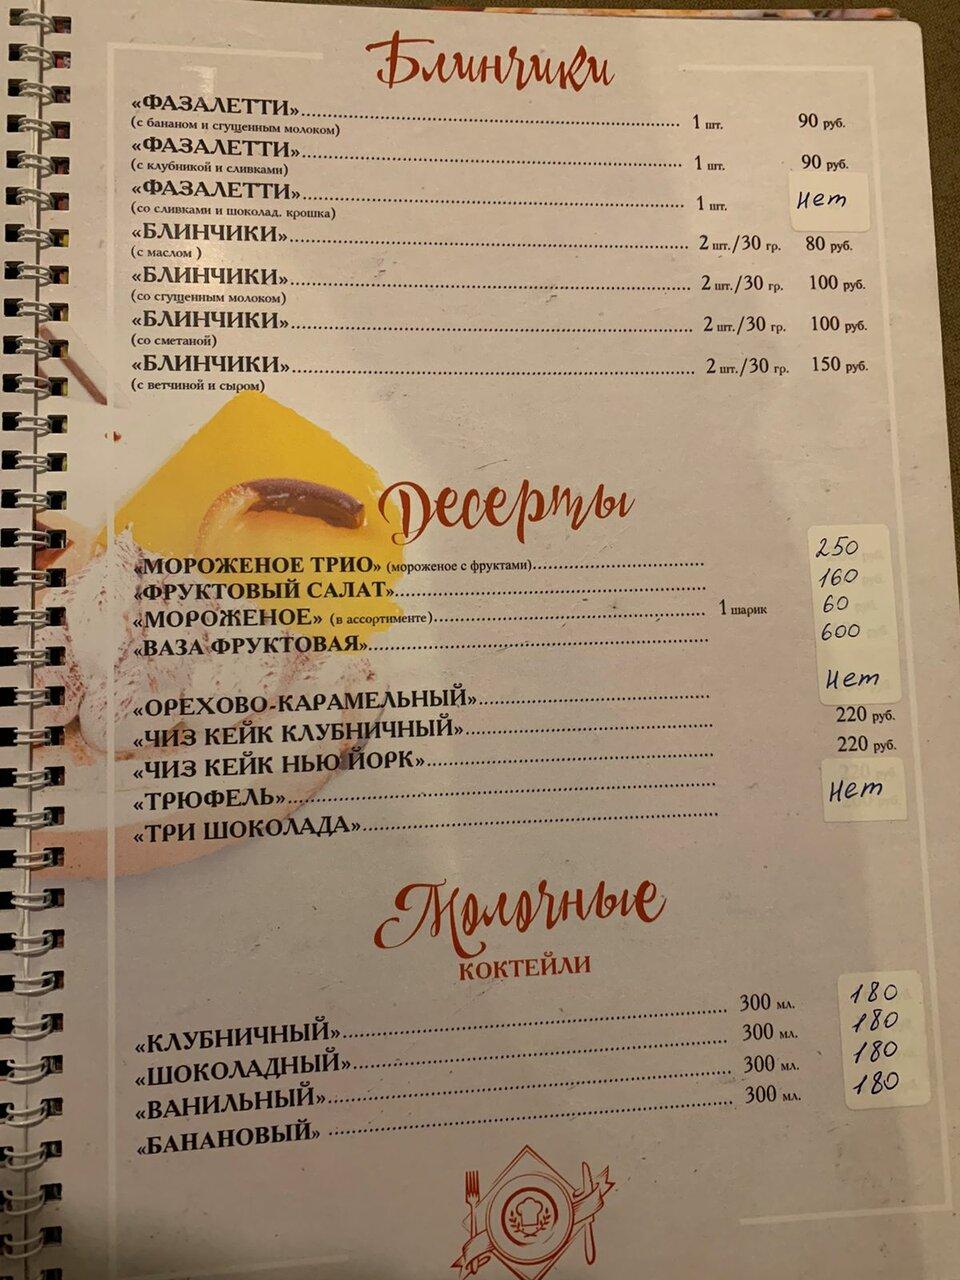 Блинчики
«ФАЗАЛЕТТИ» 1 шт. 90 руб.
(с бананом и сгущенным молоком)
«ФАЗАЛЕТТИ» 1 шт. 90 руб.
(с клубникой и сливками)
«ФАЗАЛЕТТИ» 1 шт. Нет
(со сливками и шоколад. крошка)
«БЛИНЧИКИ» 2 шт./30 гр. 80 руб.
(с маслом )
«БЛИНЧИКИ» 2 шт./30 гр. 100 руб.
(со сгущенным молоком)
«БЛИНЧИКИ» 2 шт./30 гр. 100 руб.
(со сметаной)
«БЛИНЧИКИ» 2 шт./30 гр. 150 руб.
(с ветчиной и сыром)
Десерты
«МОРОЖЕНОЕ ТРИО» (мороженое с фруктами) 250
«ФРУКТОВЫЙ САЛАТ» 160
«МОРОЖЕНОЕ» (в ассортименте) 1 шарик 60
«ВАЗА ФРУКТОВАЯ» 600
«ОРЕХОВО-КАРАМЕЛЬНЫЙ» Нет
«ЧИЗ КЕЙК КЛУБНИЧНЫЙ» 220 руб.
«ЧИЗ КЕЙК НЬЮ ЙОРК» 220 руб.
«ТРЮФЕЛЬ» Нет
«ТРИ ШОКОЛАДА»
Молочные
КОКТЕЙЛИ
«КЛУБНИЧНЫЙ» 300 мл. 180
«ШОКОЛАДНЫЙ» 300 мл. 180
«ВАНИЛЬНЫЙ» 300 мл. 180
«БАНАНОВЫЙ» 300 мл. 180